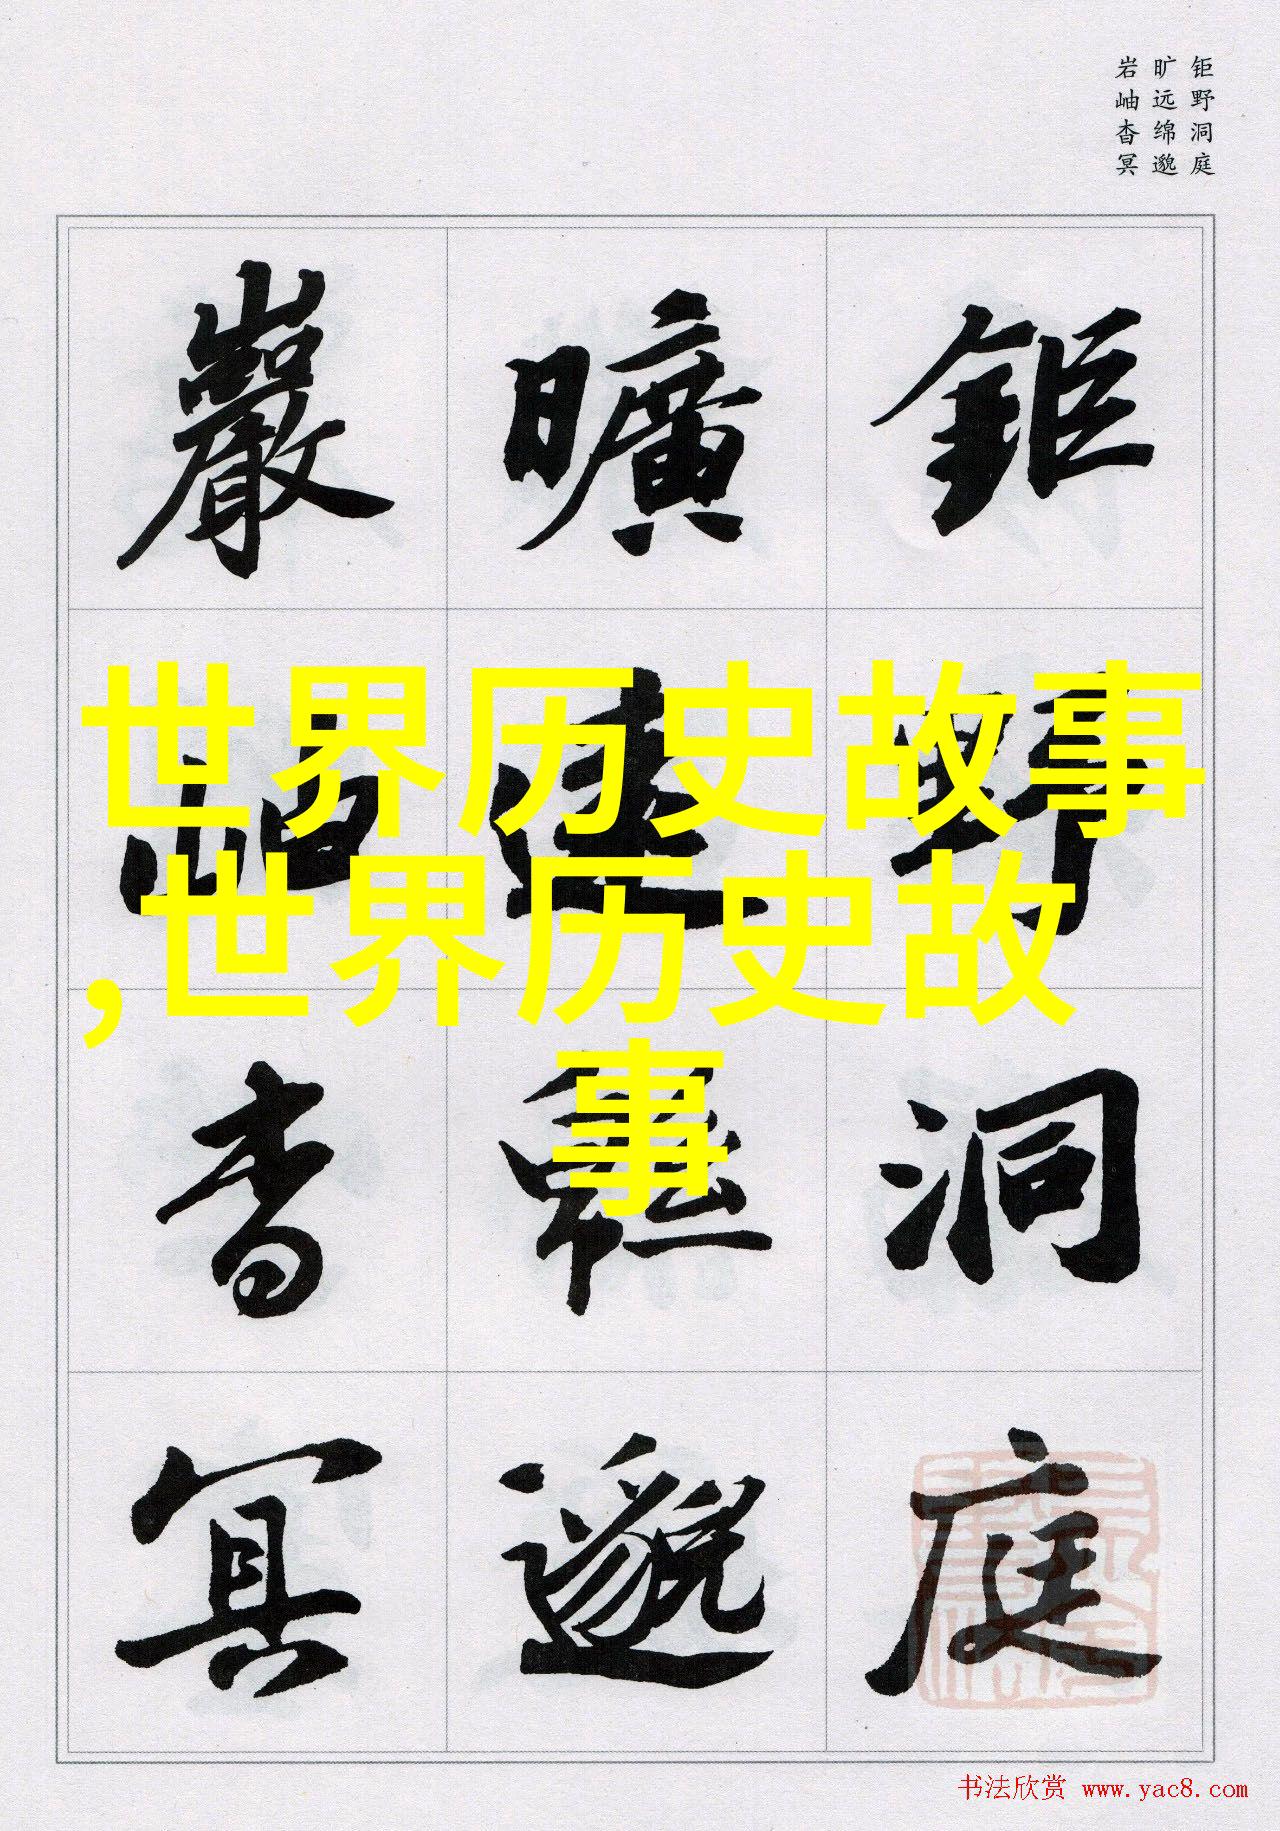 钜野洞庭
旷远绵邈
岩岫杳冥
鉅野洞庭
曠遠緜邈
巖岫杳冥
世界历史故事
,世界历史故
事
书法欣赏 www.yac8.com